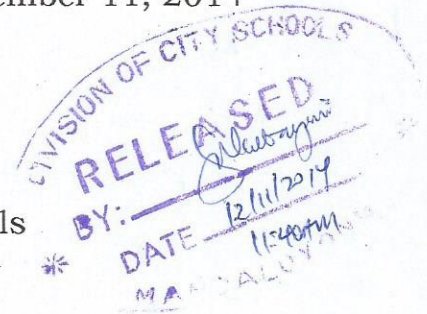 ember 11, 2014
DIVISION OF CITY SCHOOLS
RELEASED
BY:
ls
DATE 12/11/2014
11:40AM
MANDALUYONG